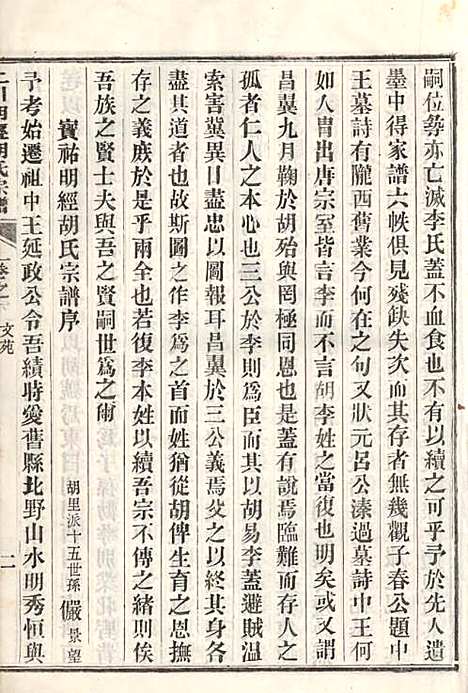 嗣位彜亦亡滅李氏蓋不血食也不有以續之可乎予於先人遺
墨中得家譜六帙俱見殘缺失次而其存者無幾觀子春公題中
王墓詩有隴西舊業今何在之句又狀元呂公溱過墓詩中王何
如人冑出唐宗室皆言李而不言胡李姓之當復也明矣雖然始
昌翼九月鞠於胡殆與罔極同恩也是蓋有說焉臨難而存人之
孤者仁人之本心也三公於李則爲臣而其以胡易李蓋避賊溫
索害冀異日盡忠以圖報耳昌翼於三公義焉父之以胡爲姓所
盡其義也故斯圖之作李爲之姓猶從胡俾生育之恩撫
存之義庶於是乎兩全也若復李本姓以續吾宗不傳之緒則俟
吾族之賢士夫與吾之賢嗣世爲之爾
寳祐明經胡氏宗譜序
胡里派十五世孫 儼 景望
予考始遷祖中王延政公令吾績時愛舊縣北野山水明秀恒與
明經胡氏宗譜
卷之
文苑
二